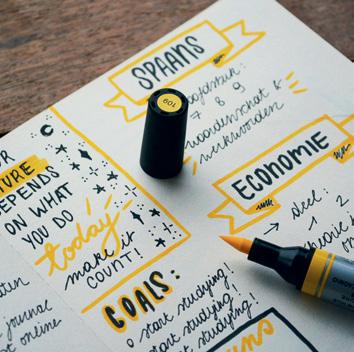 SPAANS
hoofdstuk:
7 8 9
woordenschat &
werkwoorden
109
ECONOMIE
→ deel:
1 2
UR
TURE
DEPENDS
ON WHAT
YOU DO
today
make it
COUNT!
GOALS:
o start studying!
start studying!
studying!
journal
online